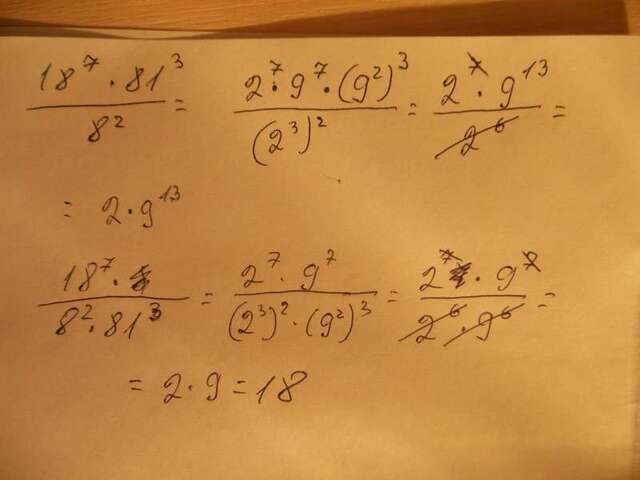 18^7 · 81^3 / 8^2 = 2^7 · 9^7 · (9^2)^3 / (2^3)^2 = 2^7 · 9^13 / 2^6 =
= 2 · 9^13
18^7 · / 8^2 · 81^3 = 2^7 · 9^7 / (2^3)^2 · (9^2)^3 = 2^7 · 9^7 / 2^6 · 9^6 =
= 2 · 9 = 18